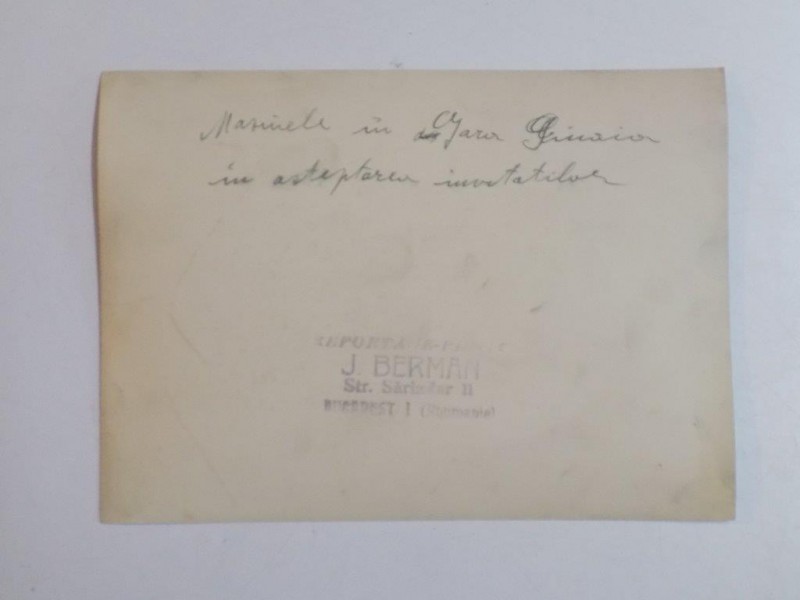 Masinele in Gara Sinaia
in asteptarea invitatilor
J. BERMAN
Str. Sărindar 11
BUCUREST I (Roumanie)